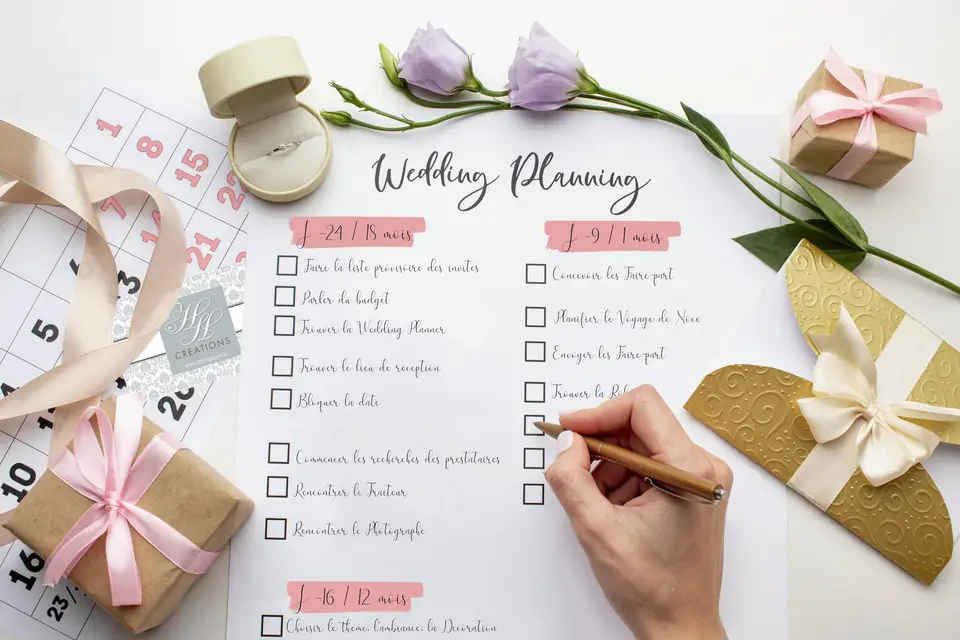 Wedding Planning
J -24 / 18 mois
Faire la liste provisoire des invites
Parler du budget
Trouver la Wedding Planner
Trouver le lieu de reception
Bloquer la date
Commencer les recherches des prestataires
Rencontrer le Traiteur
Rencontrer le Photographe
J -16 / 12 mois
Choisir le theme, l'ambiance, la Decoration
J -9 / 1 mois
Concevoir les Faire-part
Planifier le Voyage de Noce
Envoyer les Faire-part
Trouver la
CREATIONS
1
8
15
22
7
21
5
13
20
10
16
23